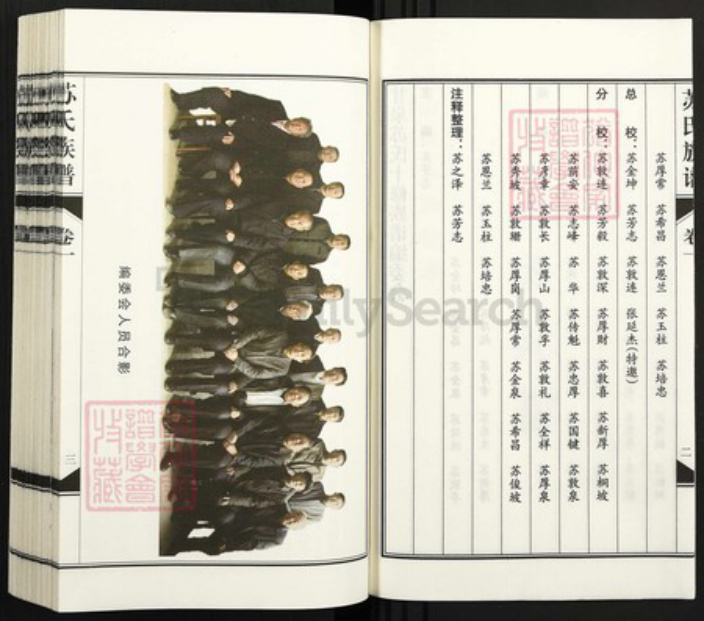 苏氏族谱 卷一 二
苏厚常 苏希昌 苏恩兰 苏玉柱 苏培忠
总 校：苏金坤 苏芳志 苏敦连 张延杰(特邀)
分 校：苏敦连 苏芳毅 苏敦深 苏厚财 苏敦喜 苏新厚 苏桐坡
苏荫安 苏志峰 苏 华 苏传魁 苏忠厚 苏国键 苏敦泉
苏彦章 苏敦长 苏厚山 苏敦孚 苏敦礼 苏全祥 苏厚泉
苏秀坡 苏敦珊 苏厚岗 苏厚常 苏金泉 苏希昌 苏俊坡
苏恩兰 苏玉柱 苏培忠
注释整理：苏之泽 苏芳志
编委会人员合影
苏氏族谱 卷一 三
谱学会
收藏
FamilySearch